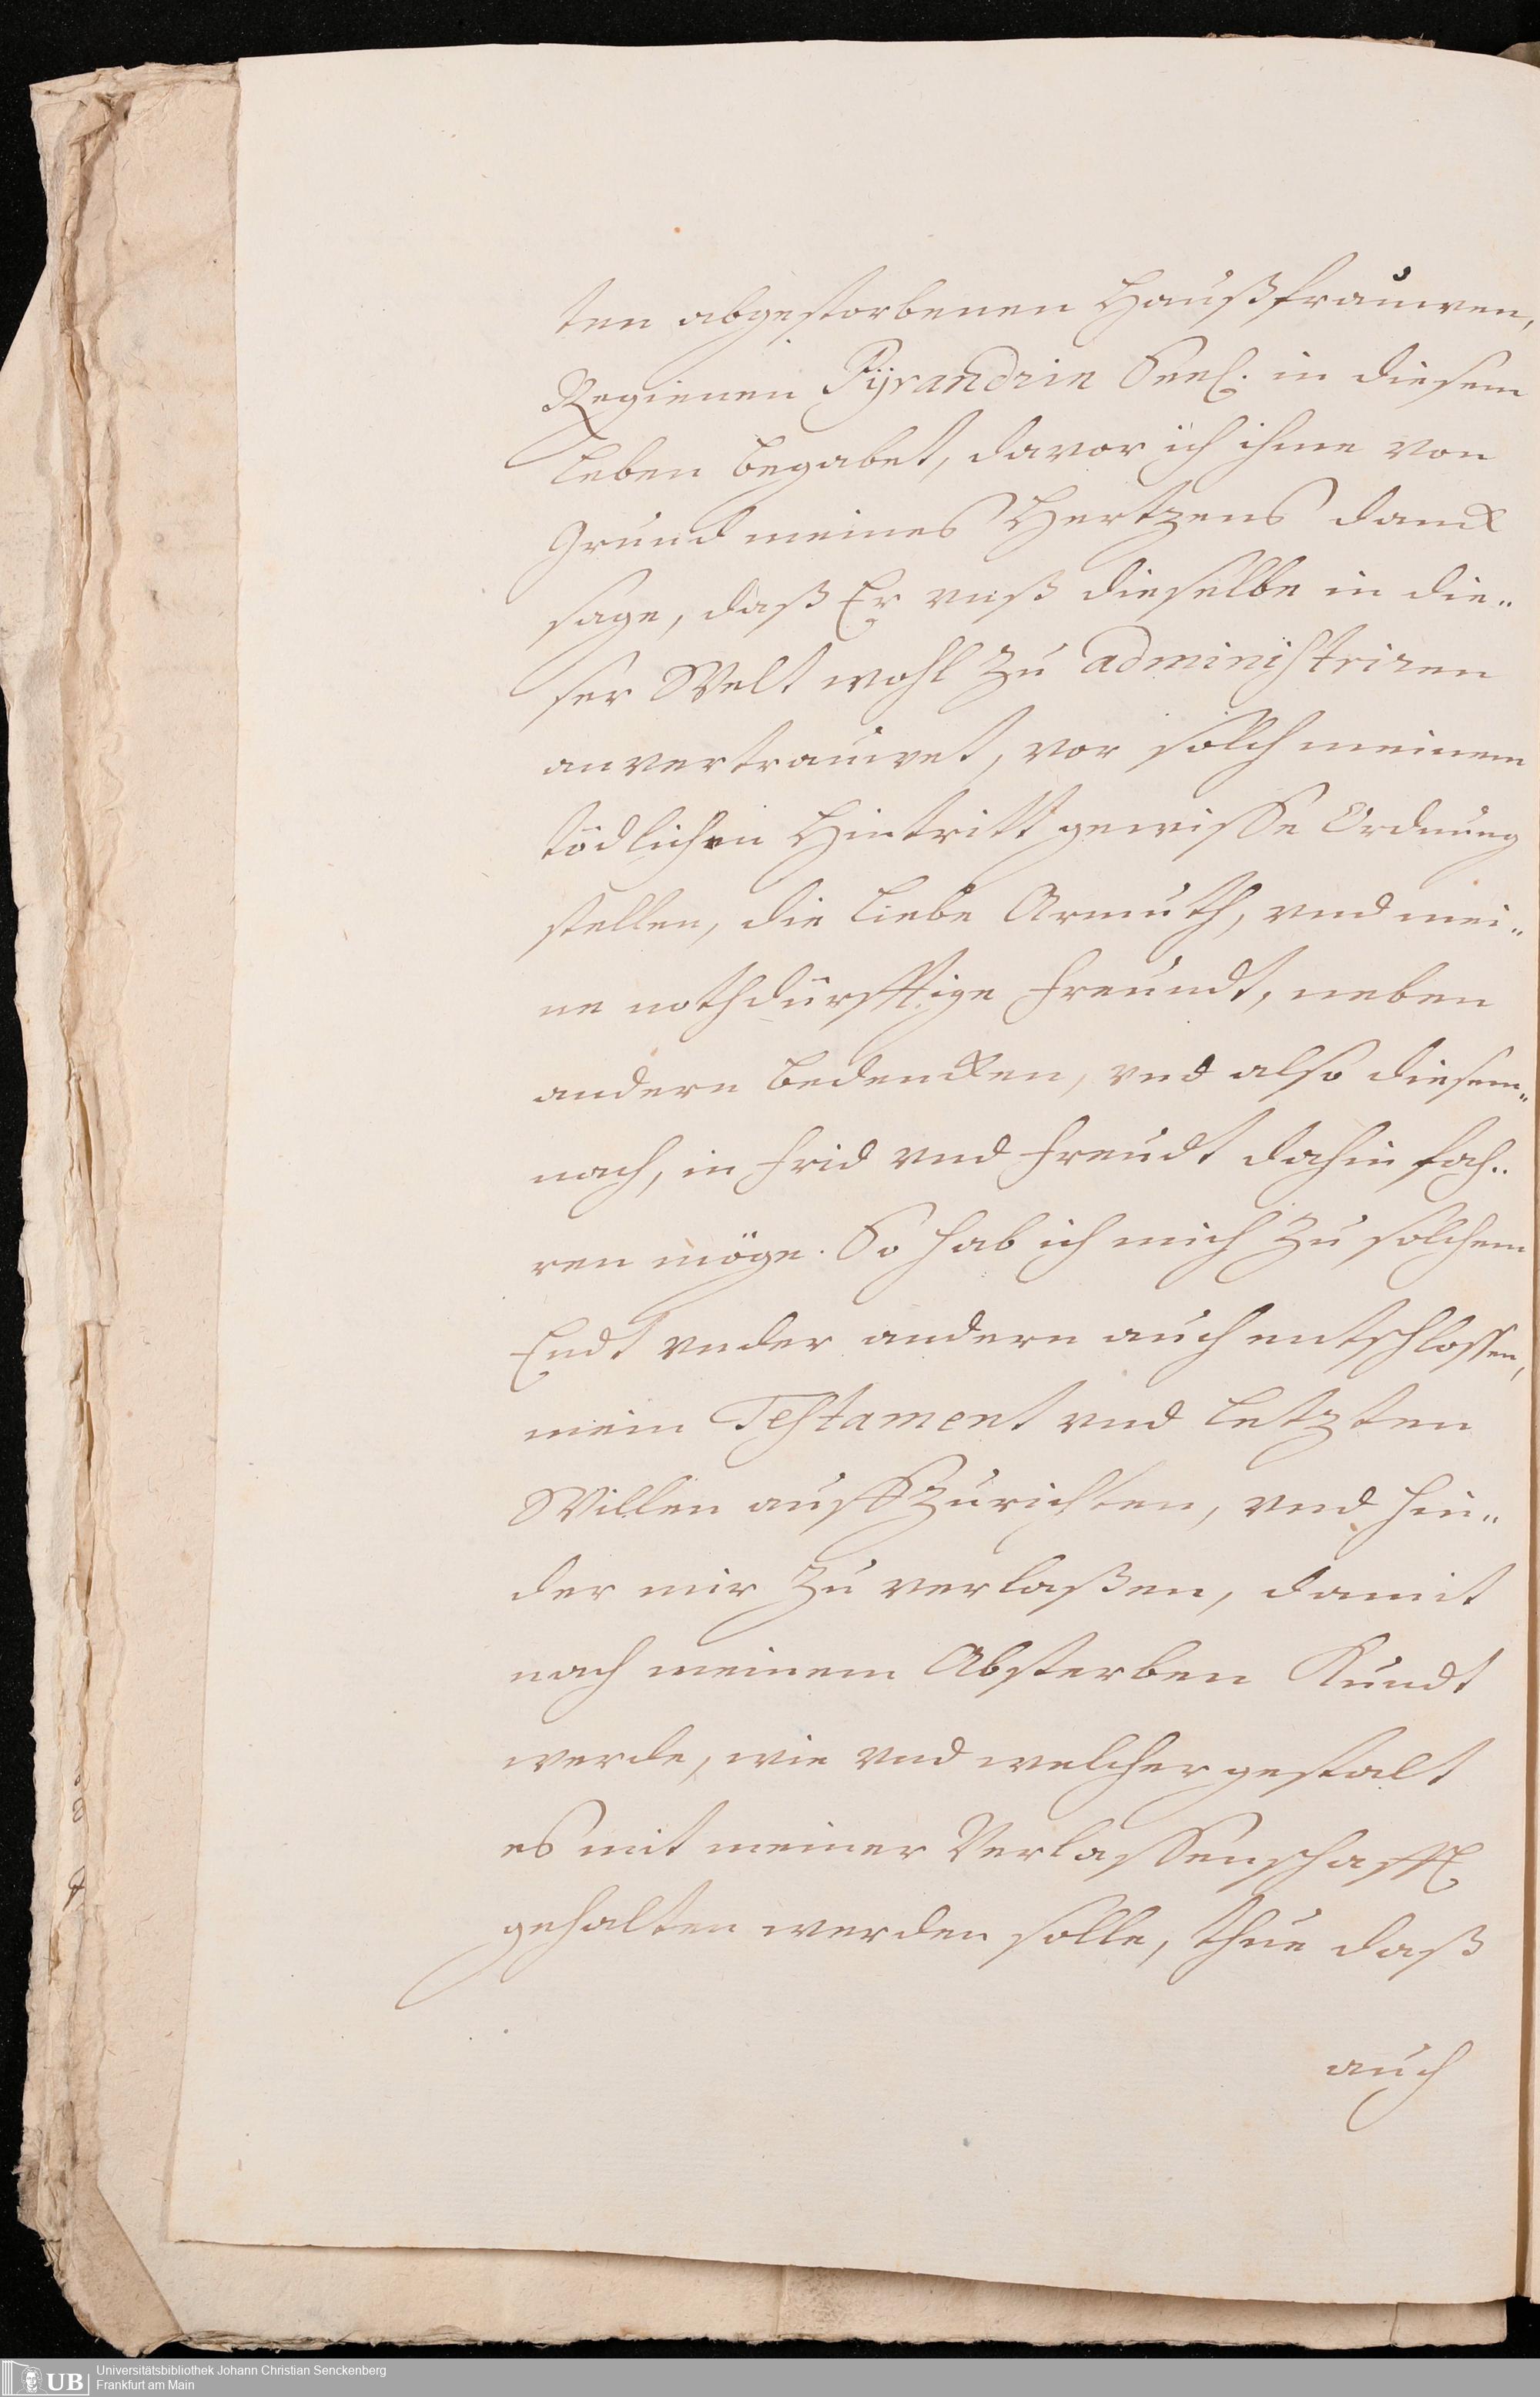 ten abgestorbenen Haußfrauwen,
Regienen Pyrandrin Seel. in diesem
leben begabet, davor ich ihme von
grund meines Hertzens danck
sage, daß Er vnß dieselbe in die„
ser Welt wohl zu administriren
anvertrauwet, vor solch meinem
tödlichen Hintritt gewisse Ordnung
stellen, die liebe Armuth, vnd mei„
ne nothdürfftige freundt, neben
andern bedencken, vnd also diesem„
nach, in frid vnd freudt dahin fah„
ren möge. So hab ich mich zu solchem
Endt vnder andern auch entschlossen,
mein Testament vnd letzten
Willen auffzurichten, vnd hin„
der mir zu verlaßen, damit
nach meinem Absterben Kundt
werde, wie vnd welcher gestalt
es mit meiner Verlassenschafft
gehalten werden solle, thue daß
auch
UB Universitätsbibliothek Johann Christian Senckenberg
Frankfurt am Main